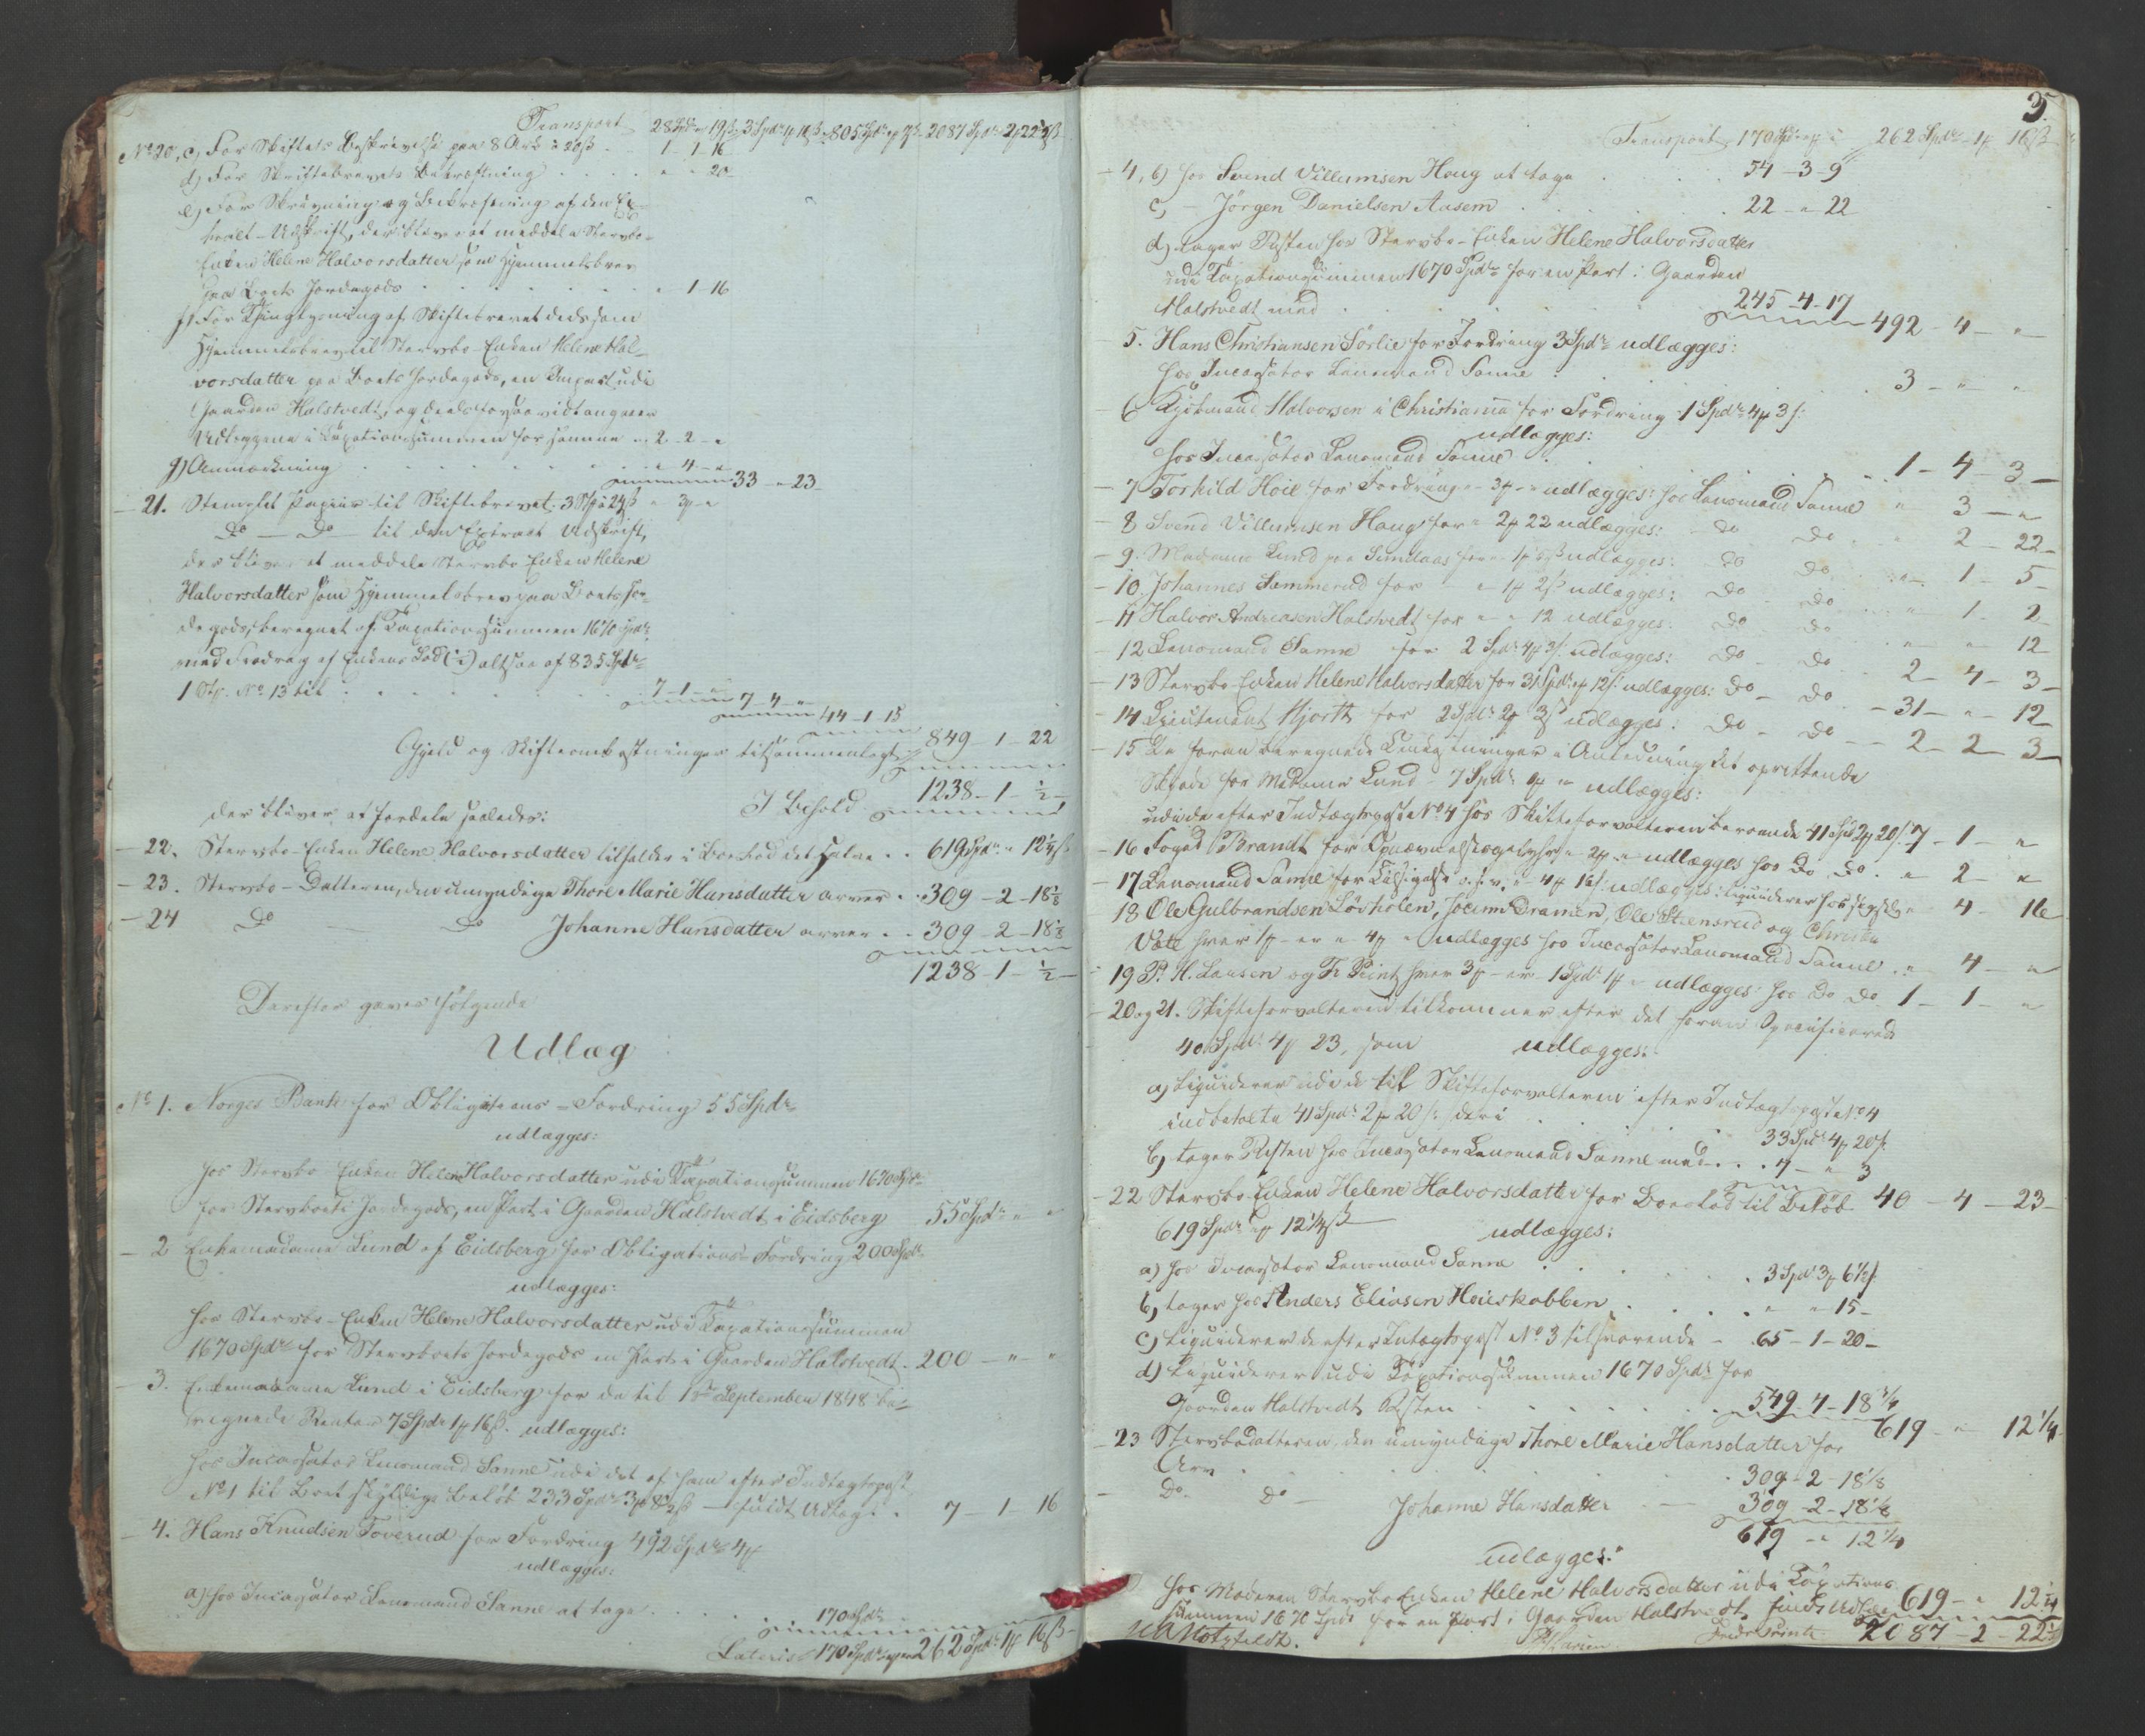 Transport 28 Spd 19ß 3 Spdr 805 Spdr 2087 Spdr 2 22½ß
No 20, c) For Skiftets Beskrivelse paa 8 Ark à 20ß - 1 - 1 - 16
d) For Skiftebrevets Bekræftning . . . . " - " 20
e) For Skrivning og Bekræftning af den Ex-
tract-Udskrift, der bliver at meddele Stervbo-
Enken Helene Halvorsdatter som Hjemmelsbrev
paa Boets Jordegods . . . . " 1 - 16
f) For Thinglysning af Skiftebrevet deels som
Hjemmelsbrev til Stervbo-Enken Helene Hal-
vorsdatter paa Boets Jordegods, en Anpart udi
Gaarden Halstvedt, og deels forsaavidt angaaer
Udlæggene i Taxationssummen for samme . . 2 - 2 - "
g) Anmærkning . . . . " 4 - " 33 - " 23
21. Stemplet Papiir til Skiftebrevet 3 Stp à 24ß " 3 - "
Do - Do - til den Extract Udskrift,
der bliver at meddele Stervbo Enken Helene
Halvorsdatter som Hjemmelsbrev paa Boets Jor-
degods, beregnet af Taxationssummen 1670 Spdr
med Fradrag af Enkens Lod (½) altsaa af 835 Spdr
1 Stp. No 13 til . . . . 7 - 1 - " 7 - 4 - "
44 - 1 - 15
Gjeld og Skifteomkostninger tilsammenlagt 849 - 1 - 22
I Behold 1238 - 1 - ½
der bliver at fordele saaledes:
22. Stervbo-Enken Helene Halvorsdatter tilfalder i Boeslod det halve . . 619 Spdr " 12¼ß
23. Stervbo-Datteren, den umyndige Thore Marie Hansdatter arver . . 309 - 2 - 18⅛
24 Do - Do Johanne Hansdatter arver . . 309 - 2 - 18⅛
1238 - 1 - ½
Derefter gaves følgende
Udlæg
No 1. Norges Bank for Obligations-Fordring 55 Spdr
udlægges:
hos Stervbo Enken Helene Halvorsdatter udi Taxationssummen 1670 Spdr
for Stervboets Jordegods, en Part i Gaarden Halstvedt i Eidsberg 55 Spdr " "
2 Enkemadame Lund af Eidsberg for Obligations-Fordring 200 Spdr
udlægges:
hos Stervbo-Enken Helene Halvorsdatter udi Taxationssummen
1670 Spdr for Stervboets Jordegods en Part i Gaarden Halstvedt. 200 - " "
3. Enkemadame Lund i Eidsberg for de til 1ste September 1848 be-
regnede Renter 7 Spdr 1 16ß. udlægges:
hos Incassator Lensmand Sanne udi det af ham efter Indtægtspost
No 1 til Boet skyldige Beløb 233 Spdr 3 8½ß - fuldt Udlæg . . 7 - 1 - 16
4. Hans Knudsen Toverud for Fordring 492 Spdr 4
udlægges:
a) hos Incassator Lensmand Sanne at tage . . . . 170 Spdr
Lateris 170 Spdr 262 Spdr 1 16ß
3.
Transport 170 Spdr 262 Spdr - 1 16ß
4, b) hos Svend Villumsen Haug at tage . . . . 54 - 3 - 9
c) - Jörgen Danielsen Aasem . . . . 22 - " 22
d) tager Resten hos Stervbo-Enken Helene Halvorsdatter
udi Taxationssummen 1670 Spdr for en Part i Gaarden
Halstvedt med . . . . 245 - 4 - 17 492 - 4 - "
5. Hans Christiansen Sörlie for Fordring 3 Spdr udlægges:
hos Incassator Lensmand Sanne . . . . 3 - " "
6 Kjöbmand Halvorsen i Christiania for Fordring 1 Spdr 4 3ß:
udlægges:
hos Incassator Lensmand Sanne . . . . 1 - 4 - 3
7 Torhild Hoie for Fordring " 3 " udlægges: hos Lensmand Sanne " 3 - "
8 Svend Villumsen Haug for " 2 22 udlægges: Do Do . . " 2 - 22
9. Madame Lund paa for " 1 5ß udlægges: Do Do . . " 1 - 5
10. Johannes Sammerud for " 1 2ß udlægges: Do Do . . " 1 - 2
11 Halvor Andreasen Halstvedt for " " 12 udlægges: Do Do . . " " 12
12 Lensmand Sanne for 2 Spdr 4 3ß udlægges: Do Do . . 2 - 4 - 3
13 Stervbo Enken Helene Halvorsdatter for 31 Spdr 12ß udlægges: Do - Do . - 31 - " - 12
14 Lieutenant Hjorth for 2 Spdr 2 3ß udlægges: Do - Do - - 2 - 2 - 3
15 De foran beregnede Omkostninger i Anledning det oprettende
Skjøde for Madame Lund - 7 Spdr " udlægges:
udi de efter Indtægtspost No 4 hos Skifteforvalteren beroende 41 Spdr 2 20ß 7 - 1 - "
16 Foged Brandt for " 2 " udlægges hos Do Do . " 2 - "
17 Lensmand Sanne for Tilsigelse o.s.v. " 4 16ß udlægges: liquiderer hos sig selv " 4 - 16
18 Ole Gulbrandsen Lövholen, Joenn Dramen, Ole Steensrud og Christen
Vate hver 1 er " 4 " udlægges hos Incassator Lensmand Sanne . " 4 - "
19 P. H. Larsen og Fr Printz hver 3 - er - 1 Spdr 1 " udlægges: hos Do Do 1 - 1 - "
20 og 21. Skifteforvalteren tilkommer efter det foran Specificerede
40 Spdr 4 23, som udlægges:
a) Liquiderer udi de til Skifteforvalteren efter Indtægtspost No 4
indbetalte 41 Spdr 2 20ß: deri . . . . 33 Spdr 4 20ß
b) tager Resten hos Incassator Lensmand Sanne med . . . 7 - " 3
40 - 4 - 23
22 Stervbo Enken Helene Halvorsdatter for Boeslod til Beløb
619 Spdr 12¼ß - udlægges:
a) hos Incassator Lensmand Sanne . . . . 3 Spdr 3 6½ß
b) tager hos Anders Eliasen Heieskobben . . . . " " 15
c) Liquiderer de efter Indtægtspost No 3 tilsvarende - 65 - 1 - 20
d) Liquiderer udi Taxationssummen 1670 Spdr for
Gaarden Halstvedt Resten . . . . 549 - 4 - 18¾
619 - " 12¼
23 Stervbodatteren, den umyndige Thore Marie Hansdatter for
Arv . . . . 309 - 2 - 18⅛
Do Do - Johanne Hansdatter - 309 - 2 - 18⅛
619 - " 12¼
udlægges:
hos Moderen Stervbo Enken Helene Halvorsdatter udi Taxations
summen 1670 Spdr for en Part i Gaarden Halstvedt, fuldt Udlæg 619 - " 12¼
2087 - 2 - 22½
Motzfeldt. PHLarsen Fredr Printz